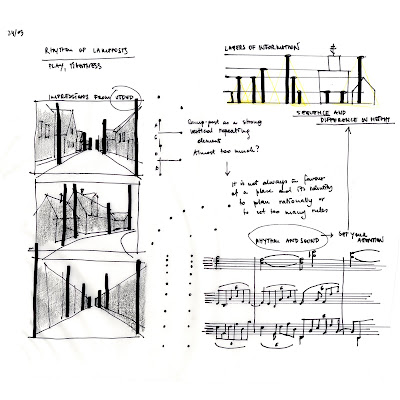 24/09
RHYTHM OF LAMPPOSTS
PLAY, TIGHTNESS
IMPRESSIONS FROM
LAYERS OF INFORMATION
SEQUENCE AND
DIFFERENCE IN HEIGHT
Lamp-post as a strong
vertical repeating
element
Almost too much?
It is not always in favour
of a place and its identity
to plan rationally or
to set too many rules
RHYTHM AND SOUND
SET YOUR
INTENTION